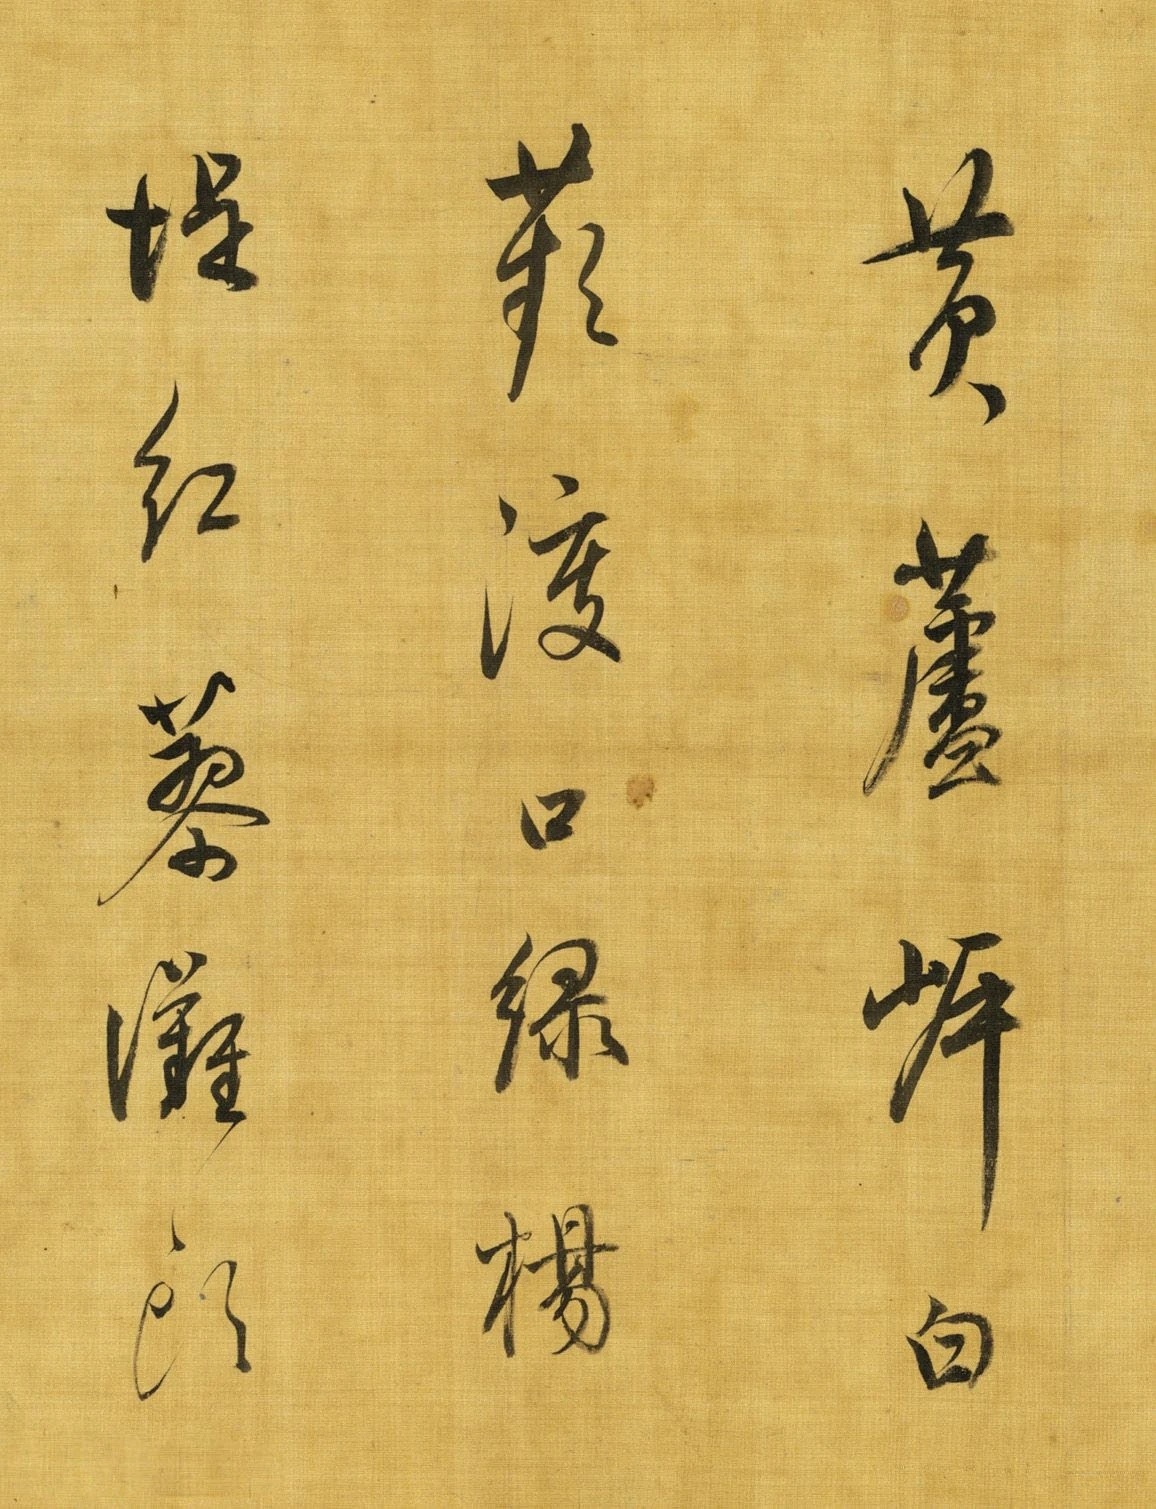 黄蘆岸白
蘋渡口緑楊
堤紅蓼灘頭